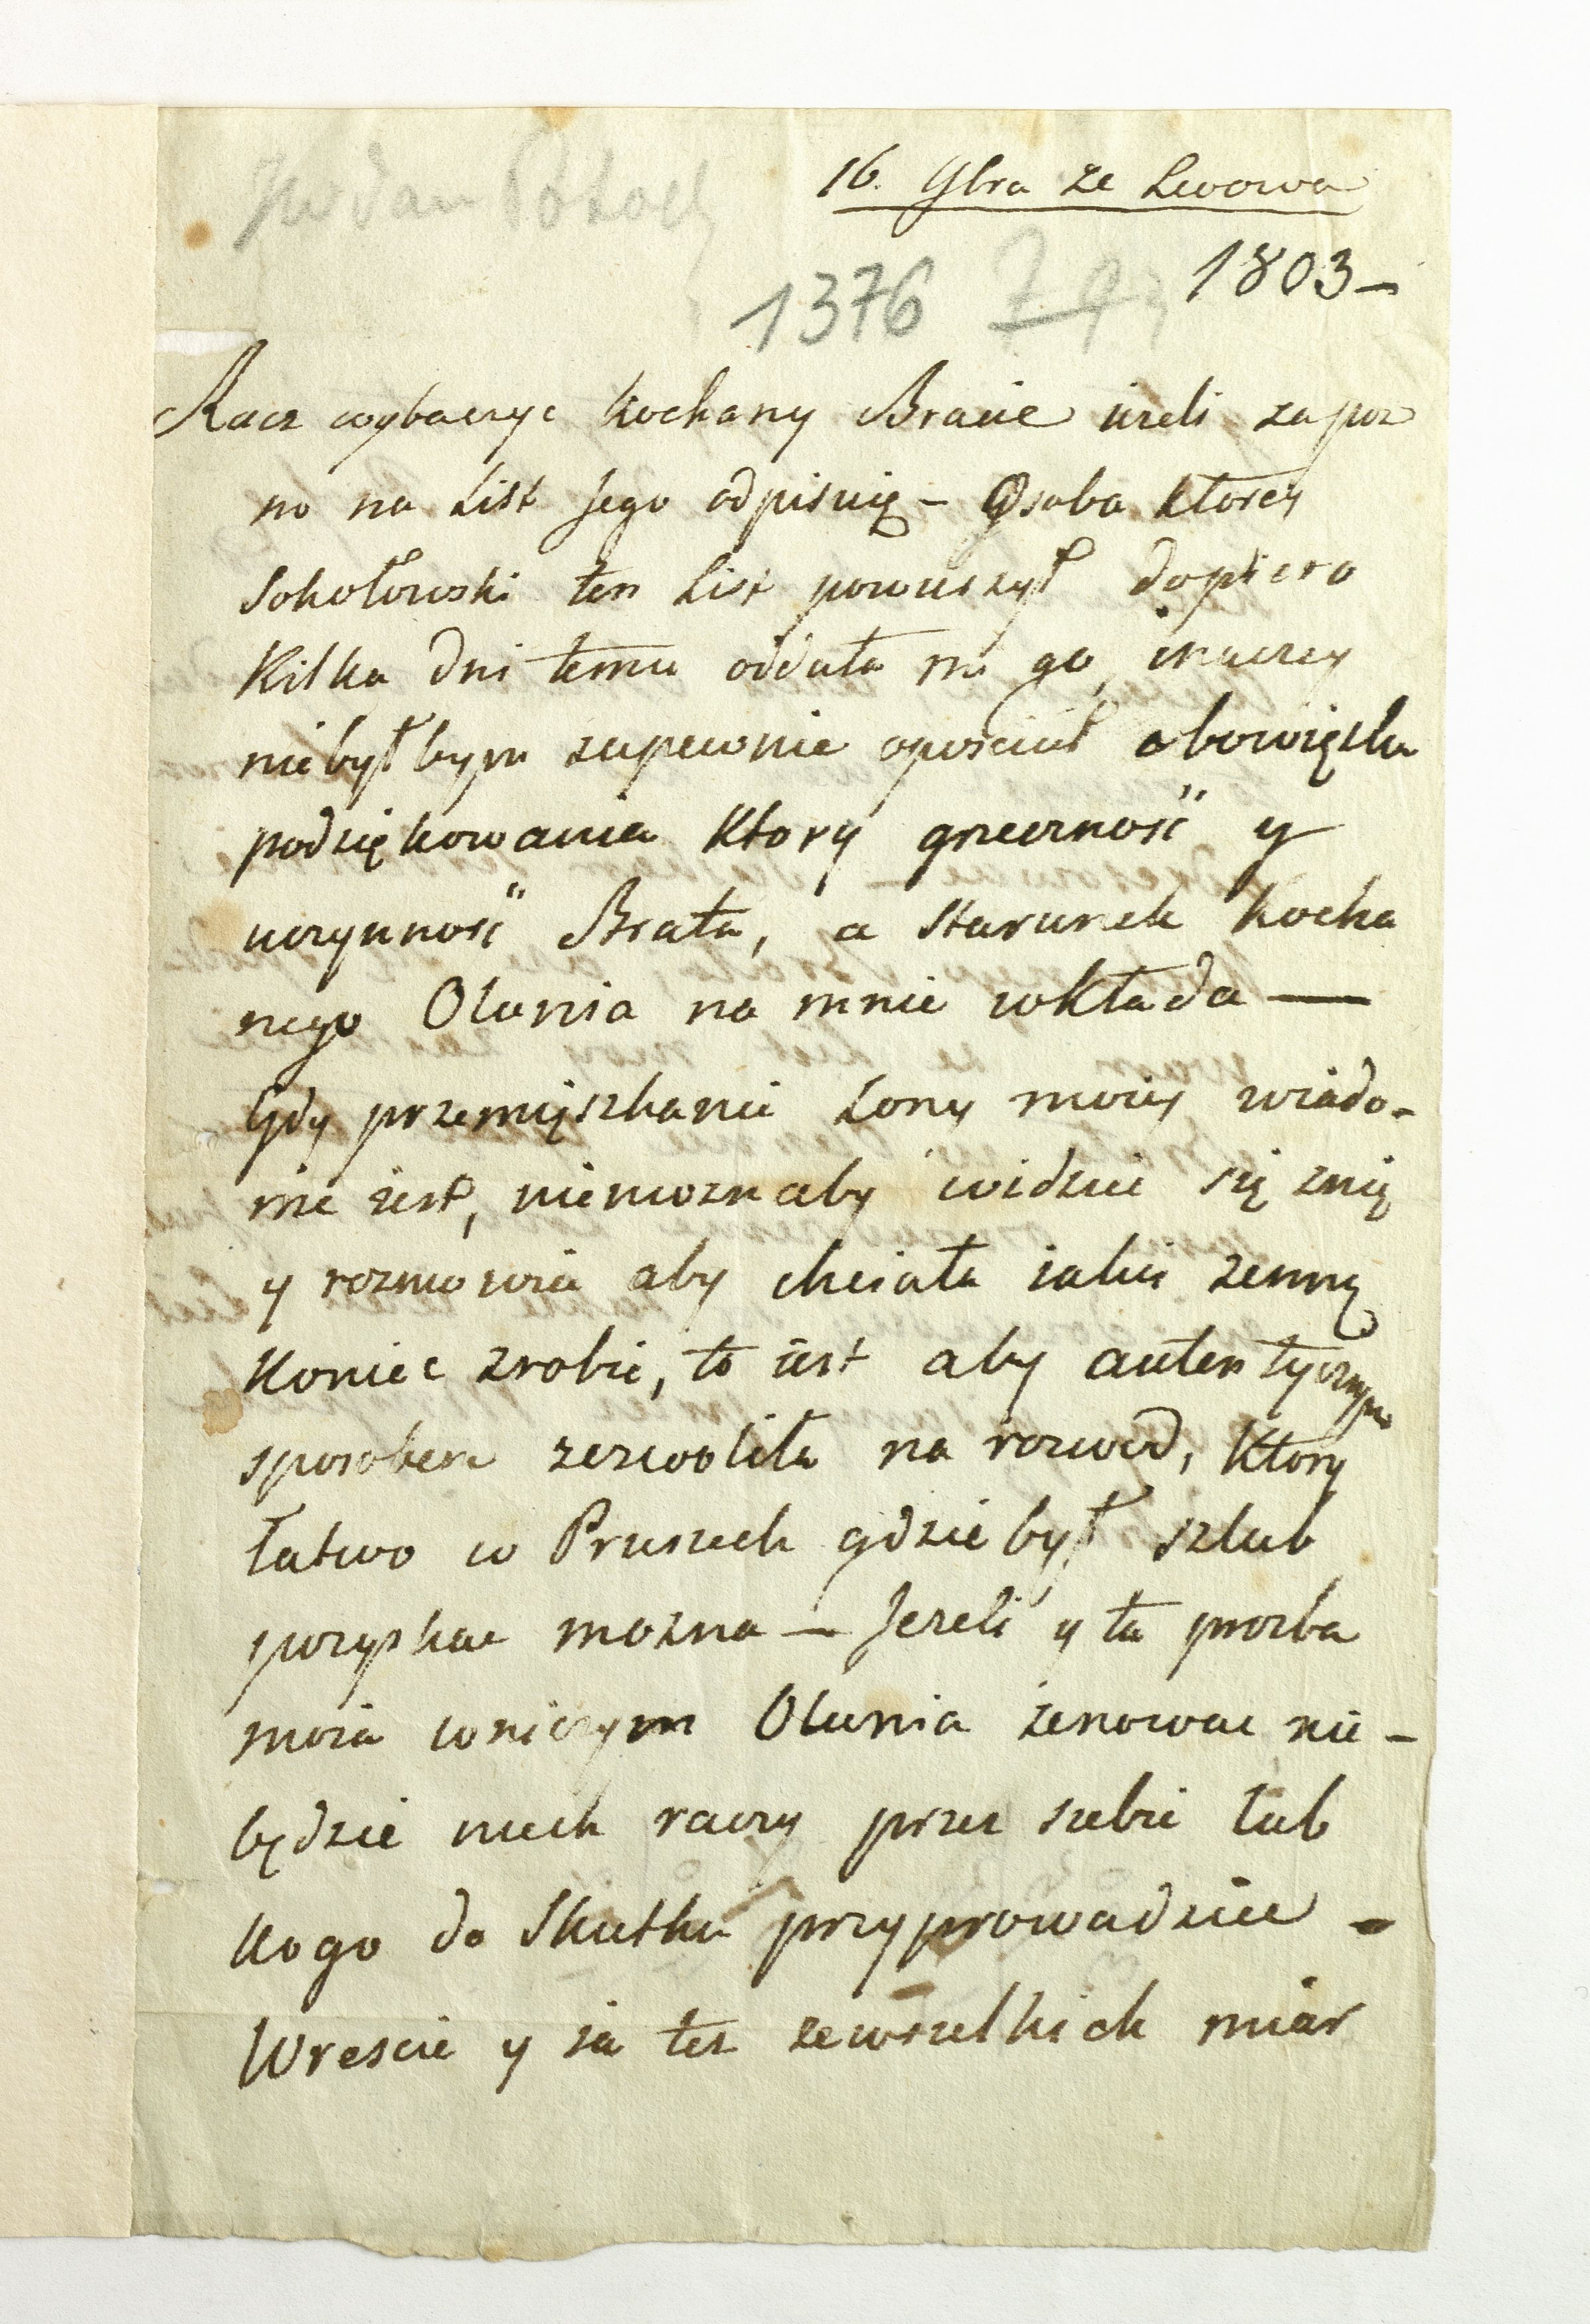 16. 9bra ze Lwowa
1803 –
1376
Racz wybaczyc kochany Bracie iezeli zapoz
no na List Jego odpisuię – Osoba ktorey
Sokołowski ten List powierzył dopiero
Kilka dni temu oddała mi go, inaczey
niebyłbym zapewnie opościł obowiązku
podziękowania ktory grzeczność y
uczynność Brata, a Starunek Kocha
nego Olunia na mnie wkłada —
Gdy przemięszkanie Żony moiey wiado-
me iest, niemoznaby widziec się znię
y rozmowic aby chciała iakis zemną
Koniec zrobic, to iest aby autentycznym
sposobem zezwoliła na rozwod, ktory
łatwo w Prusiech gdzie był szlub
pozyskac mozna – Jezeli y ta prozba
moia wniczym Olunia żenowac nie –
będzie niech raczy przez siebie lub
kogo do Skutku przyprowadzic –
Wrescie y ia tez zewszelkich miar